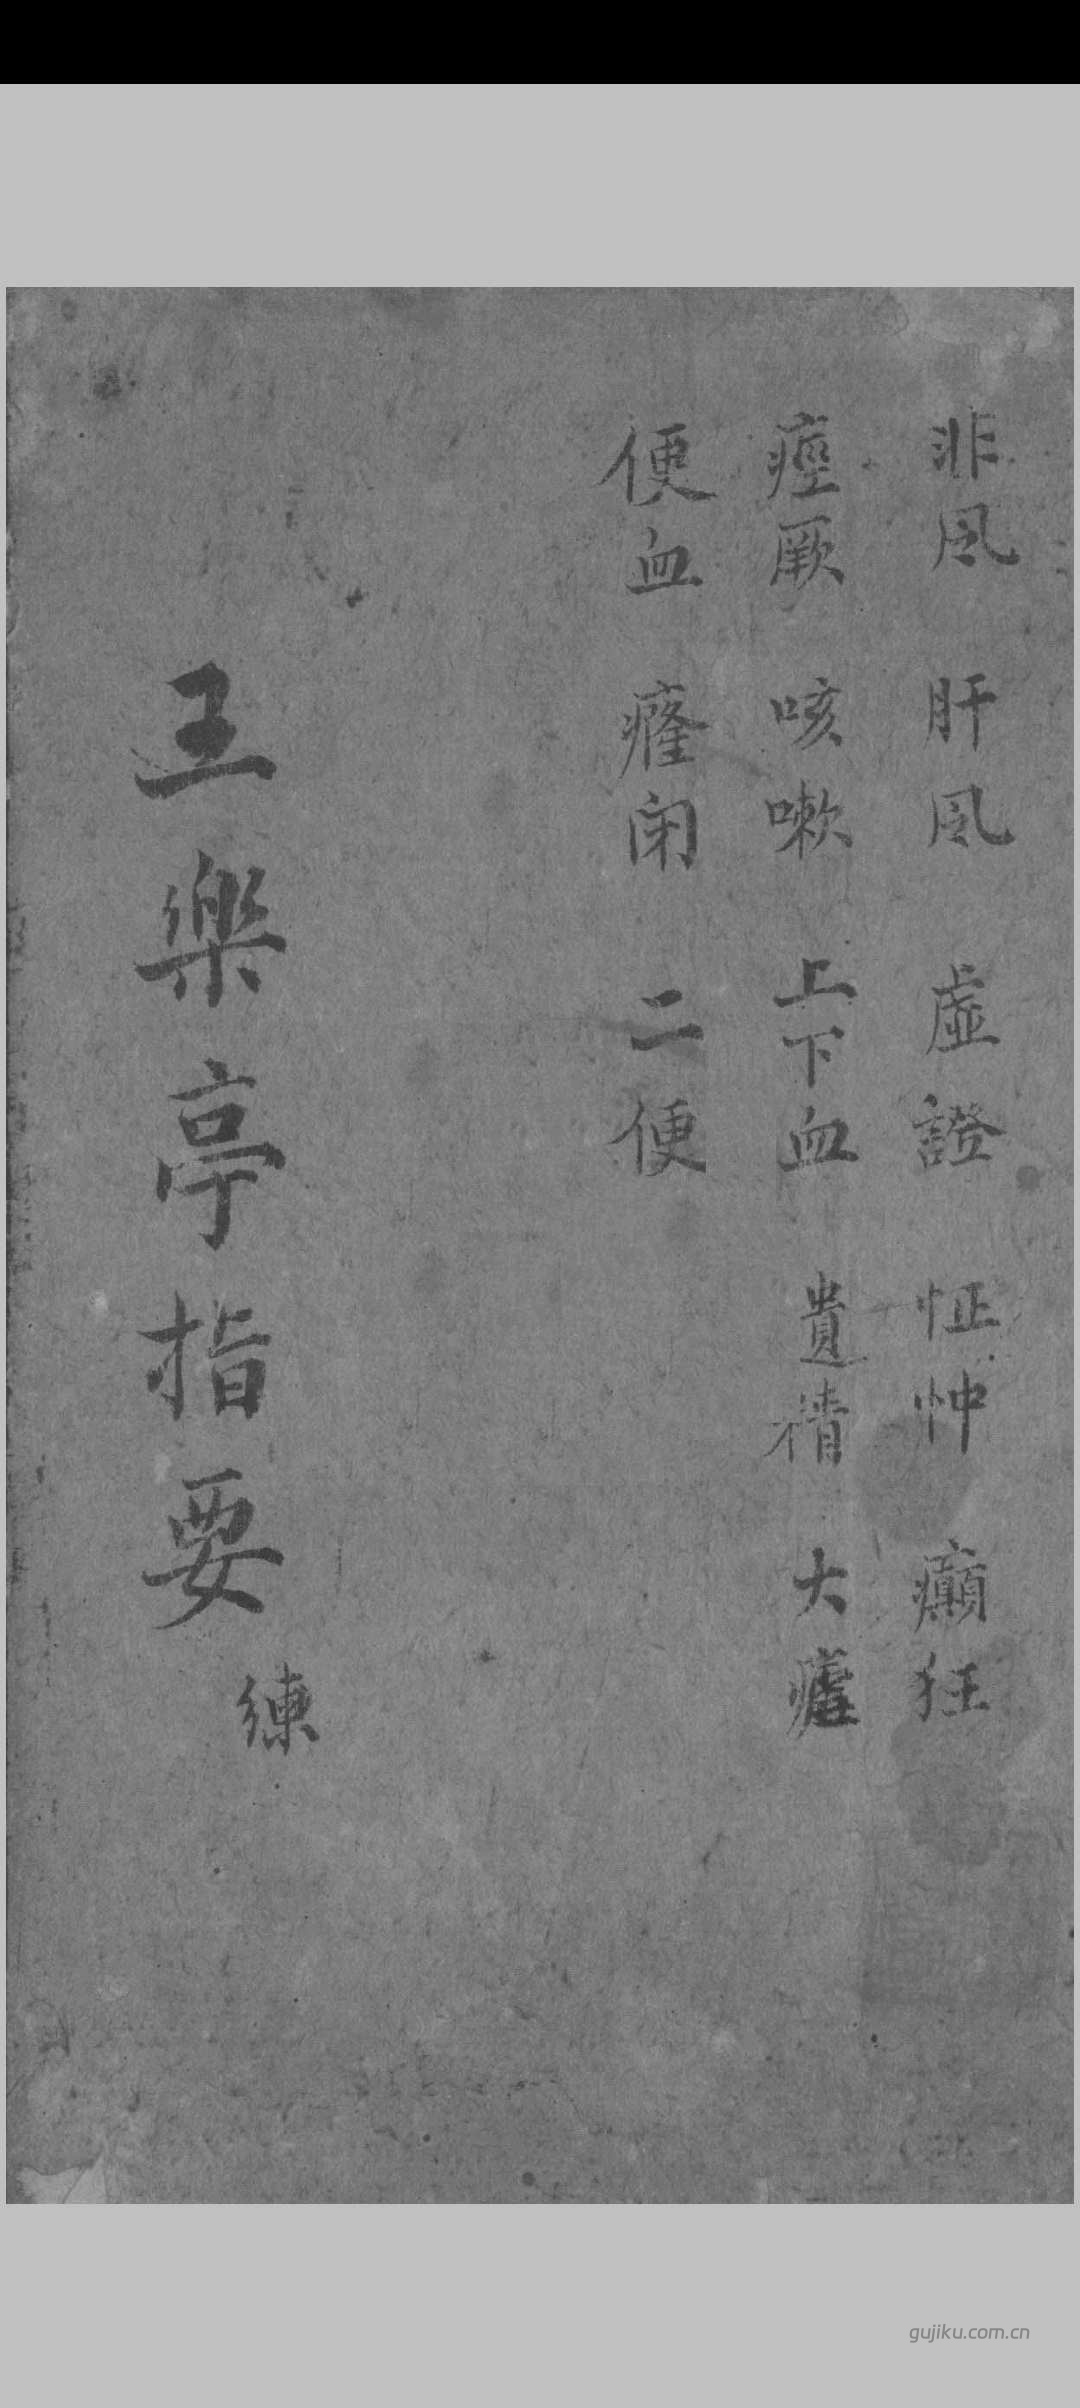 非风 肝风 虚證 怔忡 癲狂
痙厥 咳嗽 上下血 遺精 大瘧
便血 癃闭 二便
王樂亭指要
練
gujiku.com.cn